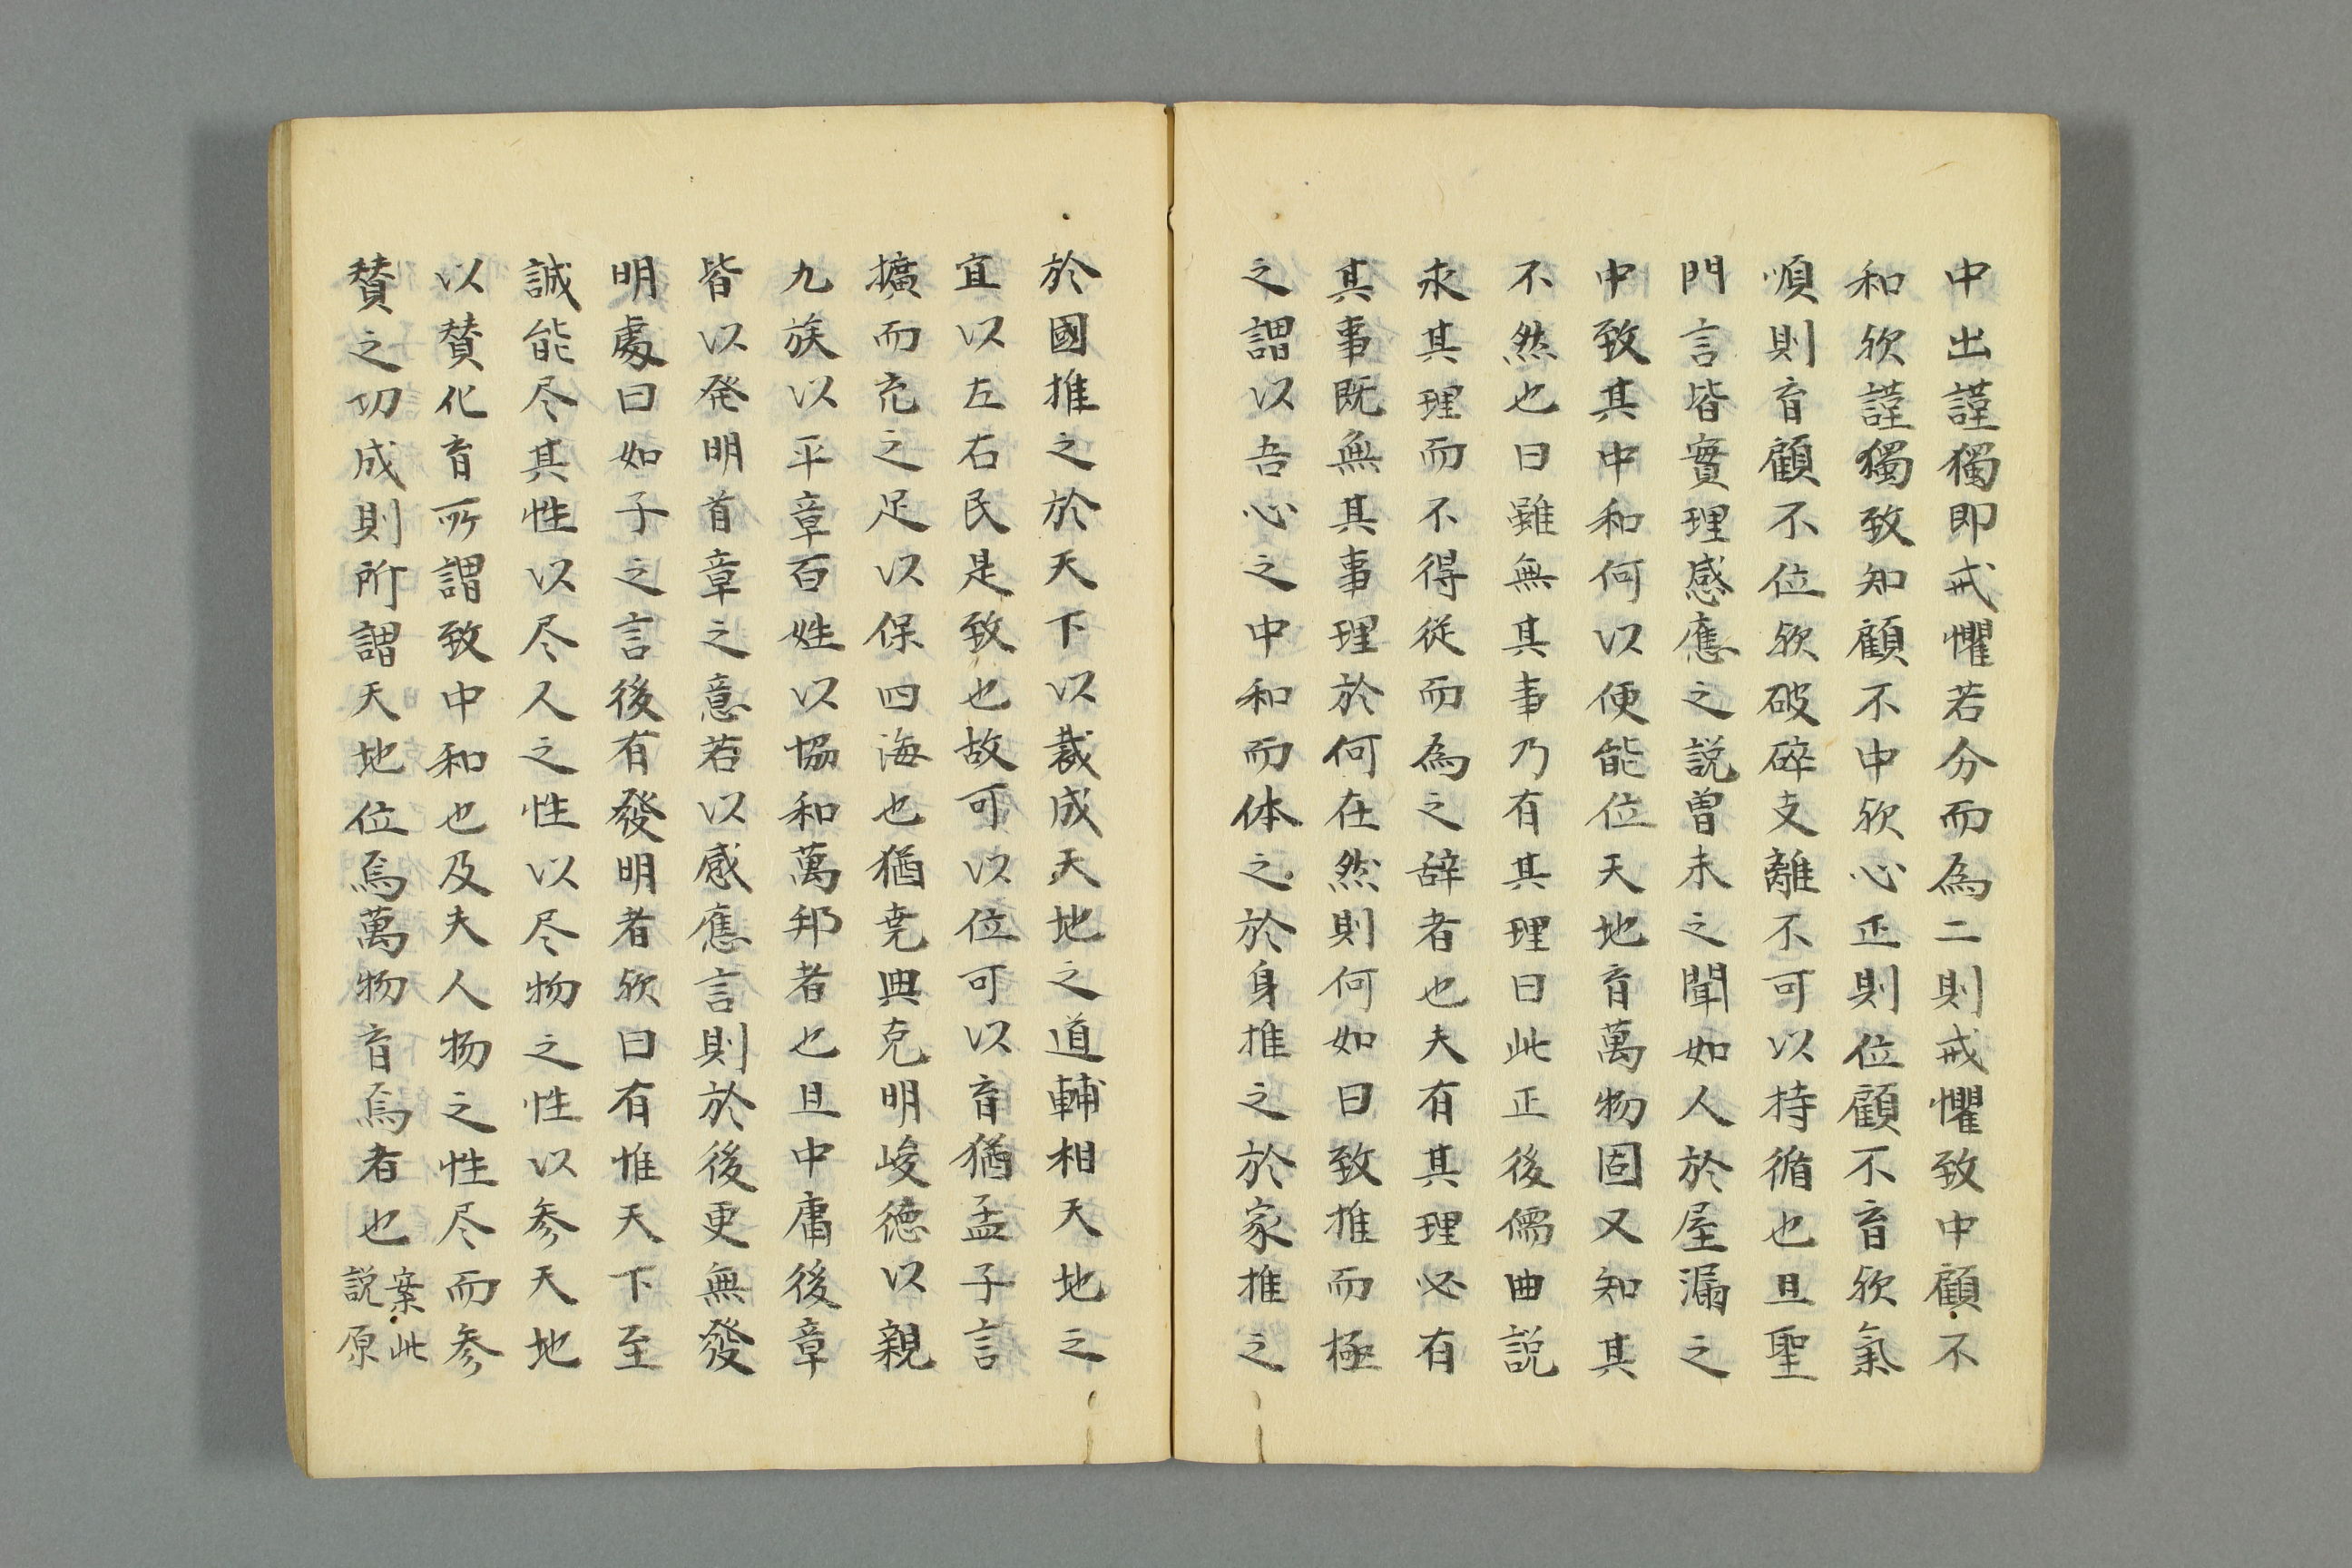 中出謹獨即戒懼若分而為二則戒懼致中顧不
和欤謹獨致知顧不中欤心正則位顧不育欤氣
順則育顧不位欤破碎支離不可以持循也且聖
門言皆實理感應之説曽未之聞如人於屋漏之
中致其中和何以便能位天地育萬物固又知其
不然也曰雖無其事乃有其理曰此正後儒曲説
求其理而不得従而為之辞者也夫有其理必有
其事既無其事理於何在然則何如曰致推而極
之謂以吾心之中和而体之於身推之於家推之
於國推之於天下以裁成天地之道輔相天地之
宜以左右民是致也故可以位可以育猶孟子言
擴而充之足以保四海也猶尭典克明峻徳以親
九族以平章百姓以協和萬邦者也且中庸後章
皆以発明首章之意若以感應言則於後更無發
明處曰如子之言後有發明者欤曰有惟天下至
誠能尽其性以尽人之性以尽物之性以参天地
以賛化育所謂致中和也及夫人物之性尽而参
賛之切成則所謂天地位焉萬物育焉者也案此
説原